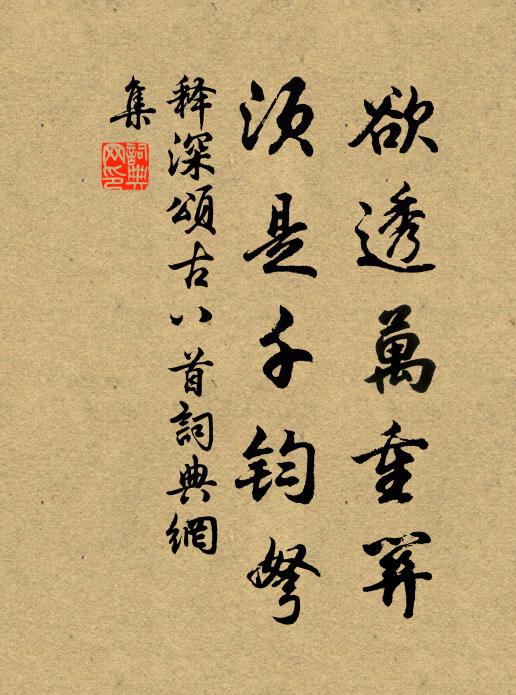 欲透萬重關
須是千鈞弩
释深頌古八首詞典網
集
詞典
网印